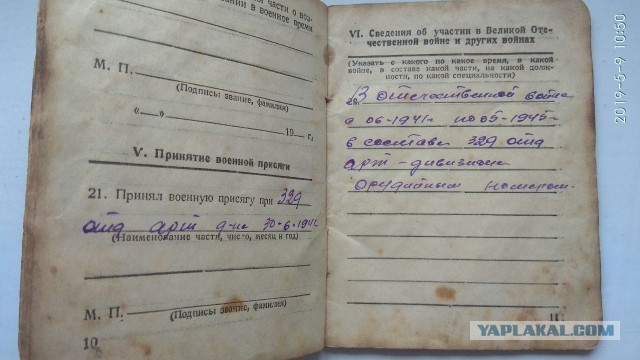 части о воз-
вании в военное время
М. П.
(Подпись, звание, фамилия)
«—» 19— г.
V. Принятие военной присяги
21. Принял военную присягу при 329
отд арт д-не 30-6-1941
(Наименование части, число, месяц и год)
М. П.
(Подпись, звание, фамилия)
10
VI. Сведения об участии в Великой Оте-
чественной войне и других войнах
(Указать с какого по какое время, в какой
войне, в составе какой части, на какой долж-
ности, по какой специальности)
В отечественной войне
с 06-1941г по 05-1945-
в составе 329 отд
арт-дивизион
орудийным номером.
11
2019-5-9 10:50
YAPLAKAL.COM